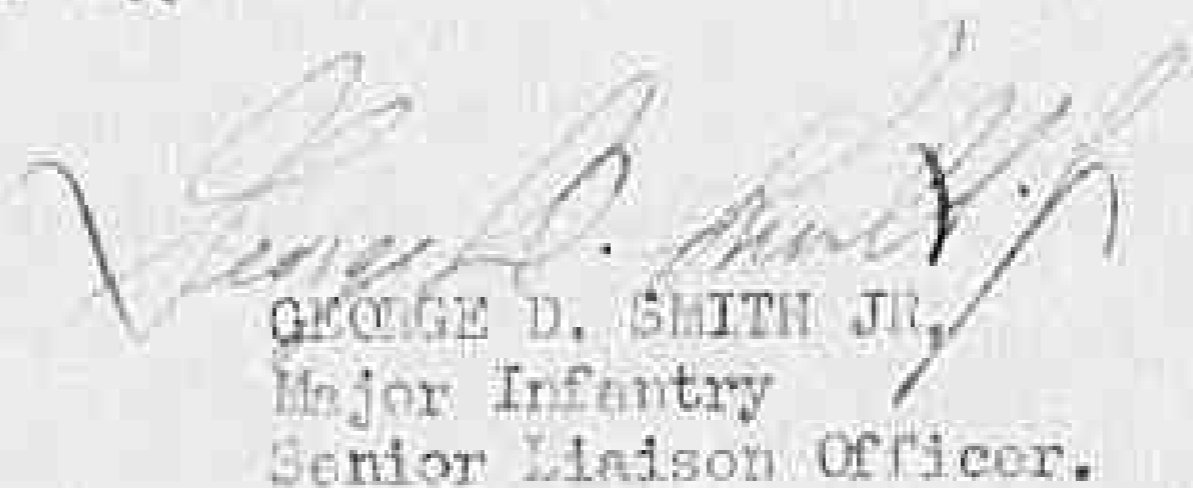 George D. Smith Jr.
GEORGE D. SMITH JR,
Major Infantry
Senior Liaison Officer.